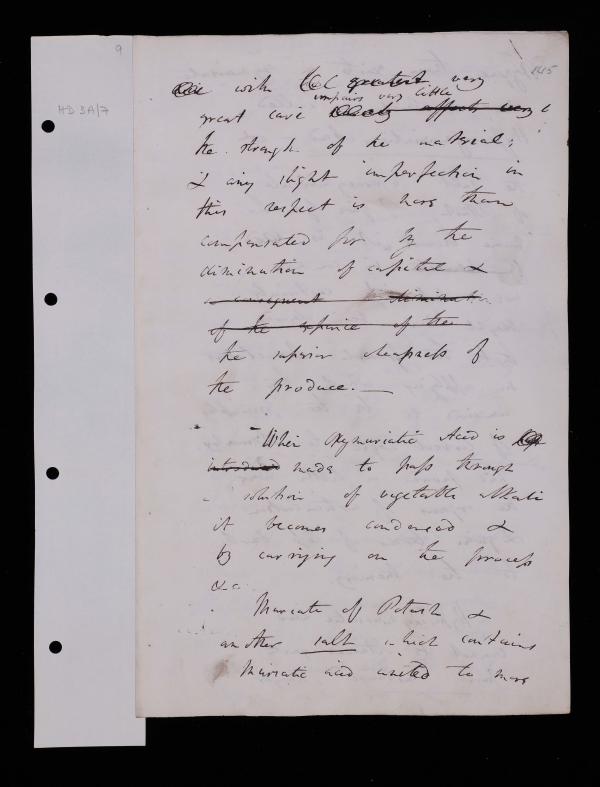 9
145
HD 3A/7
with the greatest very
impairs very little
great care affects very
the strength of the material;
& any slight imperfection in
this respect is more than
compensated for by the
diminution of capital &
a consequent diminution
of the expence of the
the superior cheapness of
the produce. —
When Oxymuriatic Acid is
introduced made to pass through
a solution of vegetable alkali
it becomes condensed &
by carrying on the process
&c
Muriate of Potash &
another salt which contains
Muriatic acid united to more